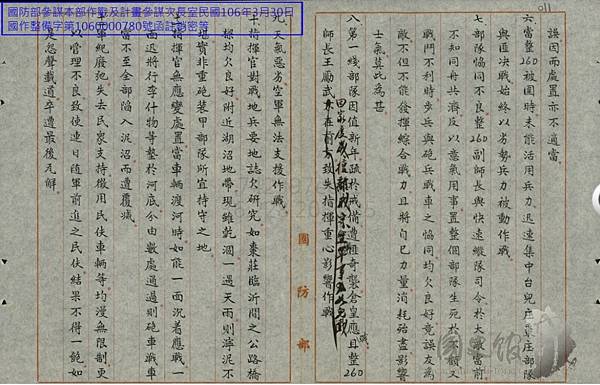 國防部參謀本部作戰及計畫參謀次長室民國106年3月30日
國作整備字第1060000780號函註銷密等
誤因而處置亦不適當
六當整260被圍時未能活用兵力迅速集中台兒庄棗庄部隊
與匪決戰始終以劣勢兵力被動作戰
七部隊協同不良整260副師長與快速縱隊司令於大敵當前
不知同舟共濟反以意氣用事置整個部隊生死於不顧又
戰鬥不利時步兵與砲兵戰車之協同均欠良好竟誤友為
敵不但不能發揮綜合戰力且將自己力量消耗殆盡影響
士氣莫此為甚
八第一綫部隊因值新年疏於戒備遭匪奇襲倉皇應戰且整260
師長王勵武亦在前方致失指揮重心影響作戰
九天氣惡劣空軍無法支援作戰
十指揮官對戰地兵要地誌欠研究如棗莊臨沂間之公路橋
樑均欠良好附近湖沼地帶現雖乾涸一遇天雨則濘泥不
堪實非重砲裝甲部隊所宜持守之地
土指揮官無應變處置當車輛渡河時如能一面沉着應戰一
面迅將行李什物等墊於河底分由數處通過則砲車戰車
當不至全部陷入泥沼而遭覆滅
士軍紀廢弛失去民眾支持徵用民伕車輛等均漫無限制更
以管理不良致使連日隨軍前進之民伕結果不得一飽如
是怨聲載道卒遭最後瓦解
國防部